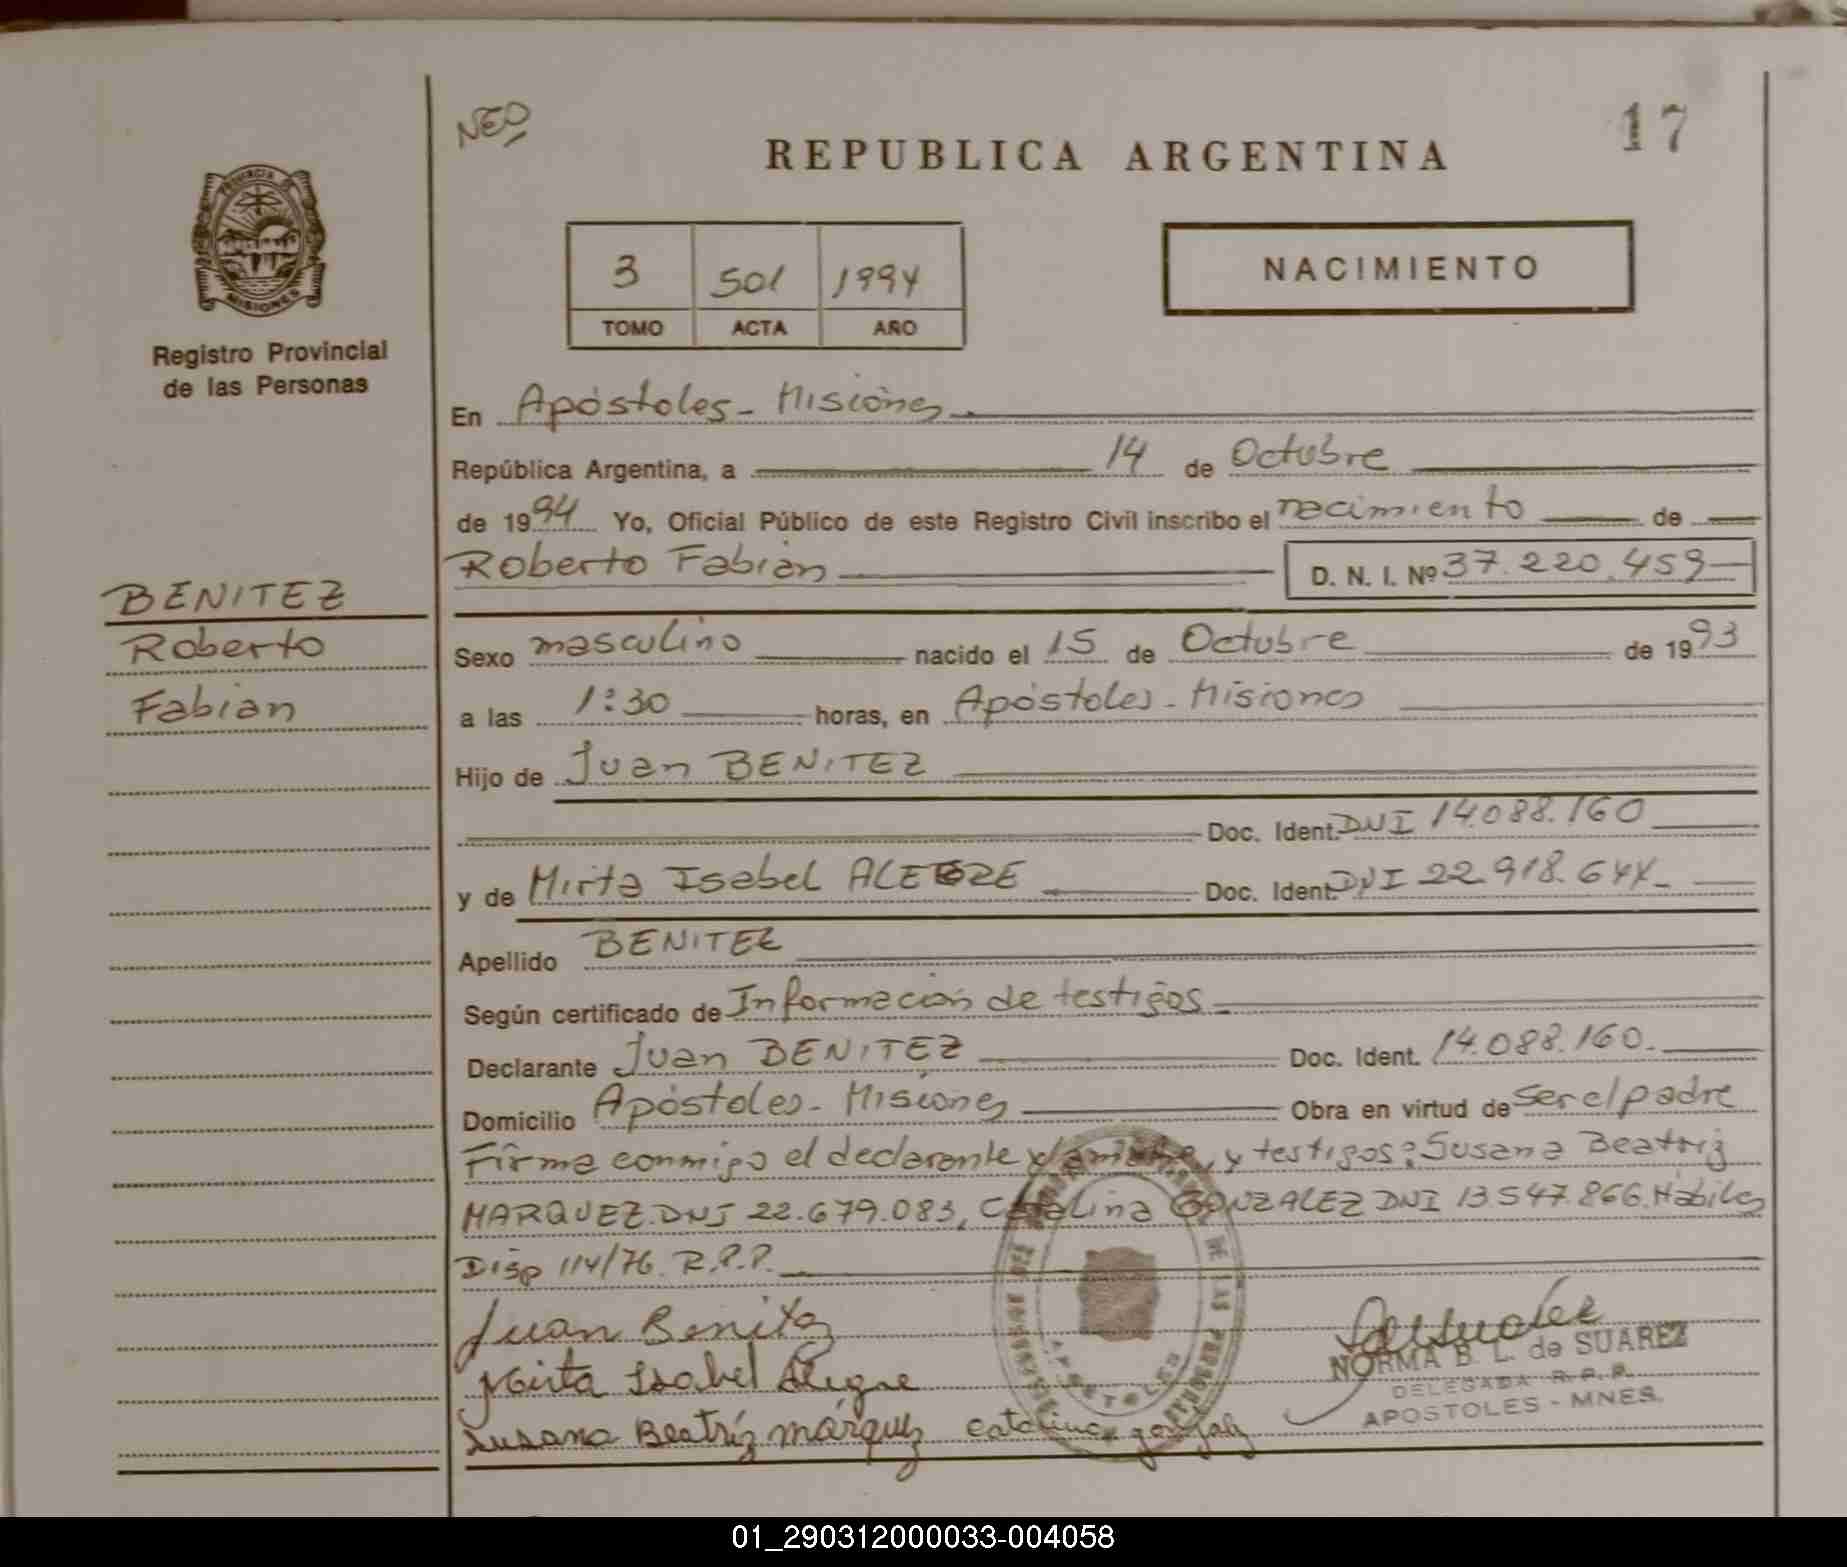 NEO
17
REPUBLICA ARGENTINA
PROVINCIA DE
MISIONES
Registro Provincial
de las Personas
3 501 1994
TOMO ACTA AÑO
NACIMIENTO
En Apóstoles - Misiones
República Argentina, a 14 de Octubre
de 1994 Yo, Oficial Público de este Registro Civil inscribo el nacimiento de
Roberto Fabián D. N. I. Nº 37.220.459
BENITEZ
Roberto
Fabián
Sexo masculino nacido el 15 de Octubre de 1993
a las 1:30 horas, en Apóstoles - Misiones
Hijo de Juan BENITEZ
Doc. Ident. DNI 14.088.160
y de Mirta Isabel ALEGRE Doc. Ident. DNI 22.918.644
Apellido BENITEZ
Según certificado de Información de testigos
Declarante Juan BENITEZ Doc. Ident. 14.088.160.
Domicilio Apóstoles - Misiones Obra en virtud de ser el padre
Firma conmigo el declarante y testigos: Susana Beatriz
MARQUEZ. DNI 22.679.083, Catalina GONZALEZ DNI 13.547.866. Hábiles
Disp 114/76. R.P.P.
Juan Benitez
Mirta Isabel Alegre
Susana Beatríz márquez catalina gonzalez
APOSTOLES
NORMA B. L. de SUAREZ
DELEGADA R. P. P.
APOSTOLES - MNES.
01_290312000033-004058